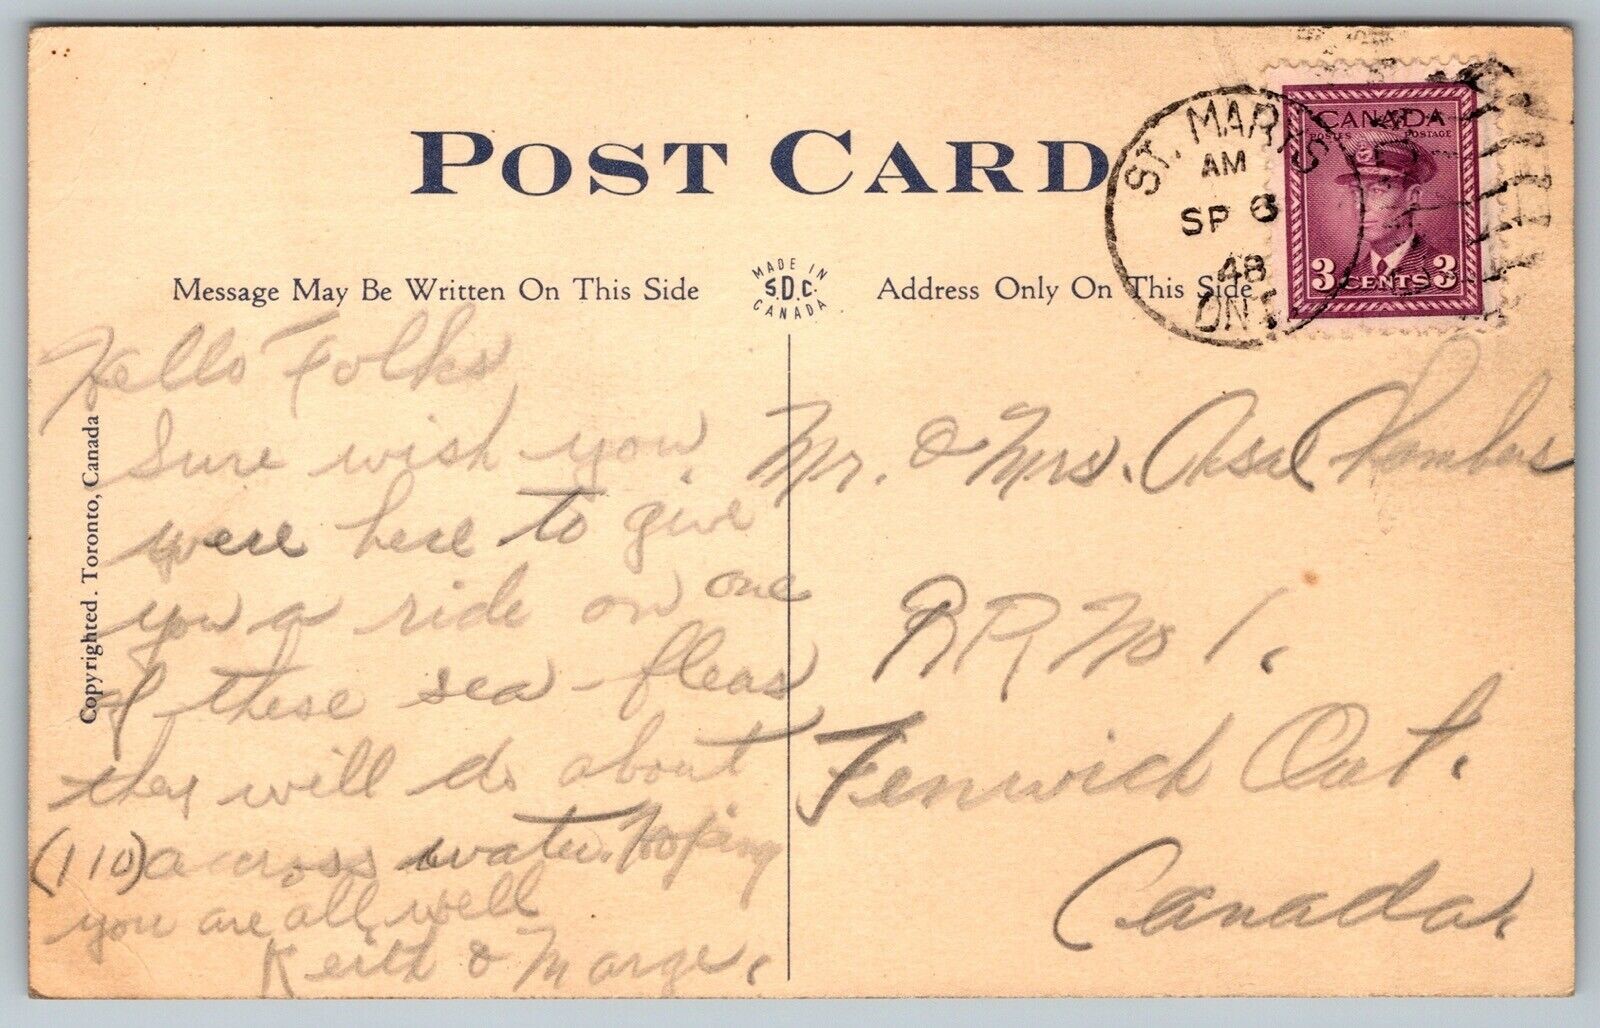 POST CARD
Message May Be Written On This Side
MADE IN
S.D.C.
CANADA
Address Only On This Side
ST. MARYS
AM
SP 6
48
ONT
CANADA
POSTES POSTAGE
3 CENTS 3
Copyrighted. Toronto, Canada
Hello Folks
Sure wish you
were here to give
you a ride on one
of these sea-fleas
they will do about
(110) across water. Hoping
you are all well
Keith & Marge.
Mr. & Mrs. Asal Chambers
R R No 1.
Fenwick Ont.
Canada.